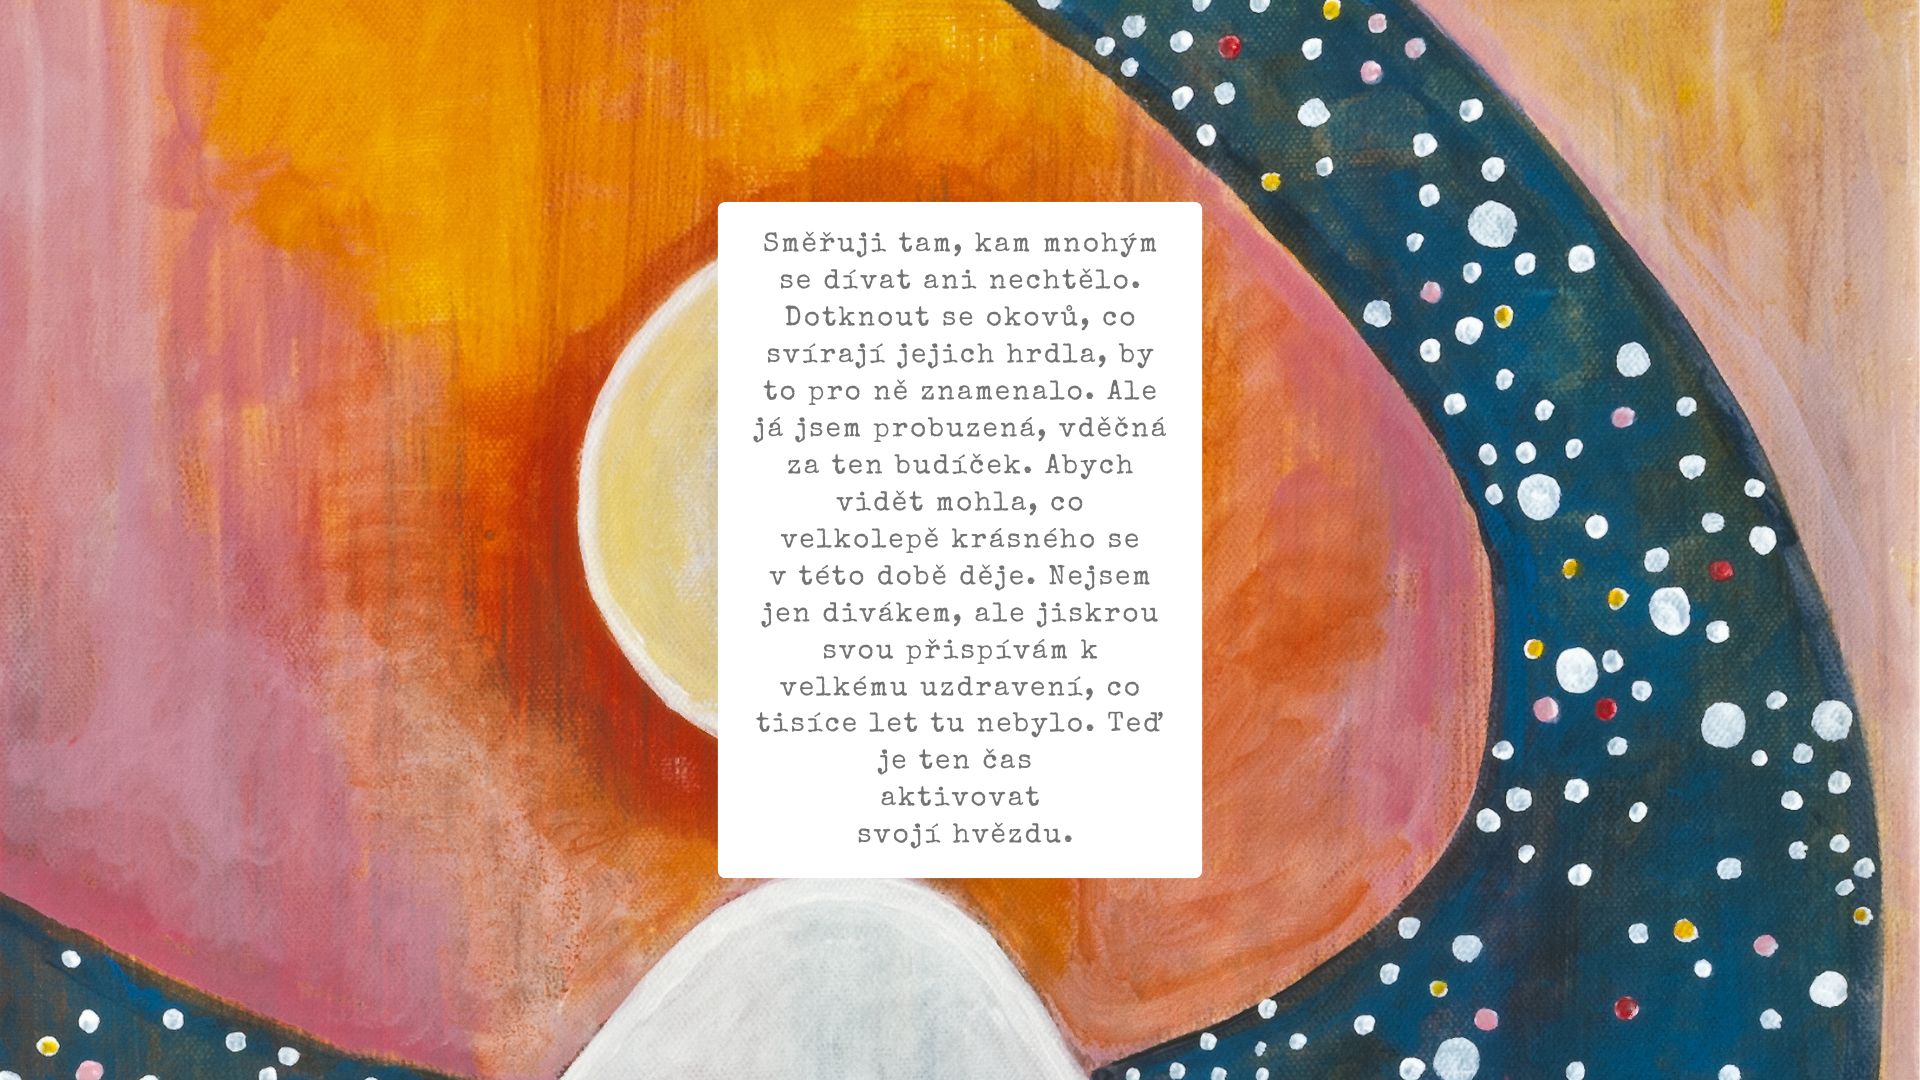 Směřuji tam, kam mnohým
se dívat ani nechtělo.
Dotknout se okovů, co
svírají jejich hrdla, by
to pro ně znamenalo. Ale
já jsem probuzená, vděčná
za ten budíček. Abych
vidět mohla, co
velkolepě krásného se
v této době děje. Nejsem
jen divákem, ale jiskrou
svou přispívám k
velkému uzdravení, co
tisíce let tu nebylo. Teď
je ten čas
aktivovat
svojí hvězdu.